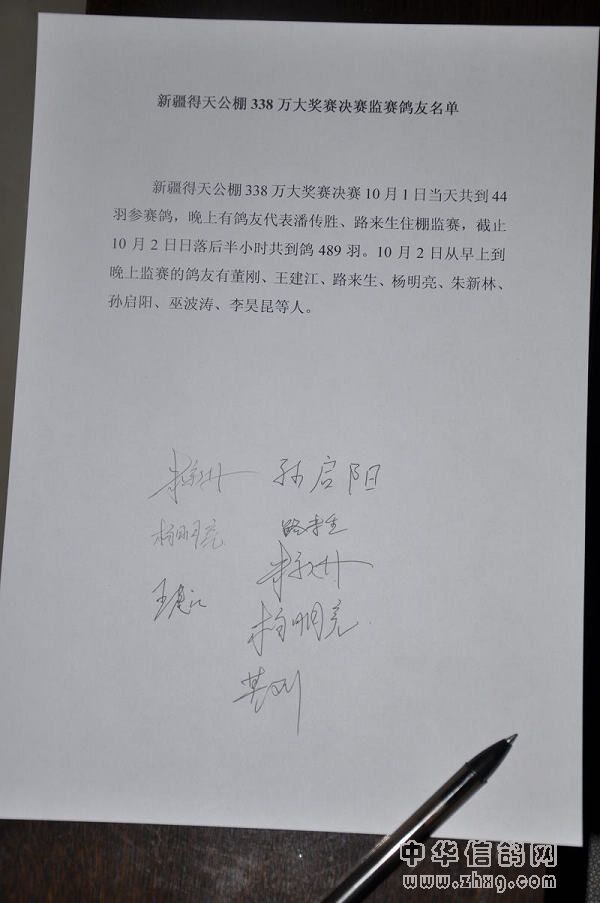 新疆得天公棚 338 万大奖赛决赛监赛鸽友名单
新疆得天公棚 338 万大奖赛决赛 10 月 1 日当天共到 44
羽参赛鸽，晚上有鸽友代表潘传胜、路来生住棚监赛，截止
10 月 2 日日落后半小时共到鸽 489 羽。10 月 2 日从早上到
晚上监赛的鸽友有董刚、王建江、路来生、杨明亮、朱新林、
孙启阳、巫波涛、李昊昆等人。
朱新林 孙启阳
杨明亮 路来生
王建江 朱新林
杨明亮
董刚
中华信鸽网
www.zhxg.com